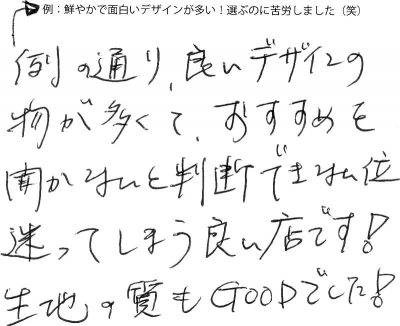 例：鮮やかで面白いデザインが多い！選ぶのに苦労しました（笑）
例の通り、良いデザインの
物が多くて、おすすめを
聞かないと判断できない位
迷ってしまう良い店です！
生地の質もGOODでした！